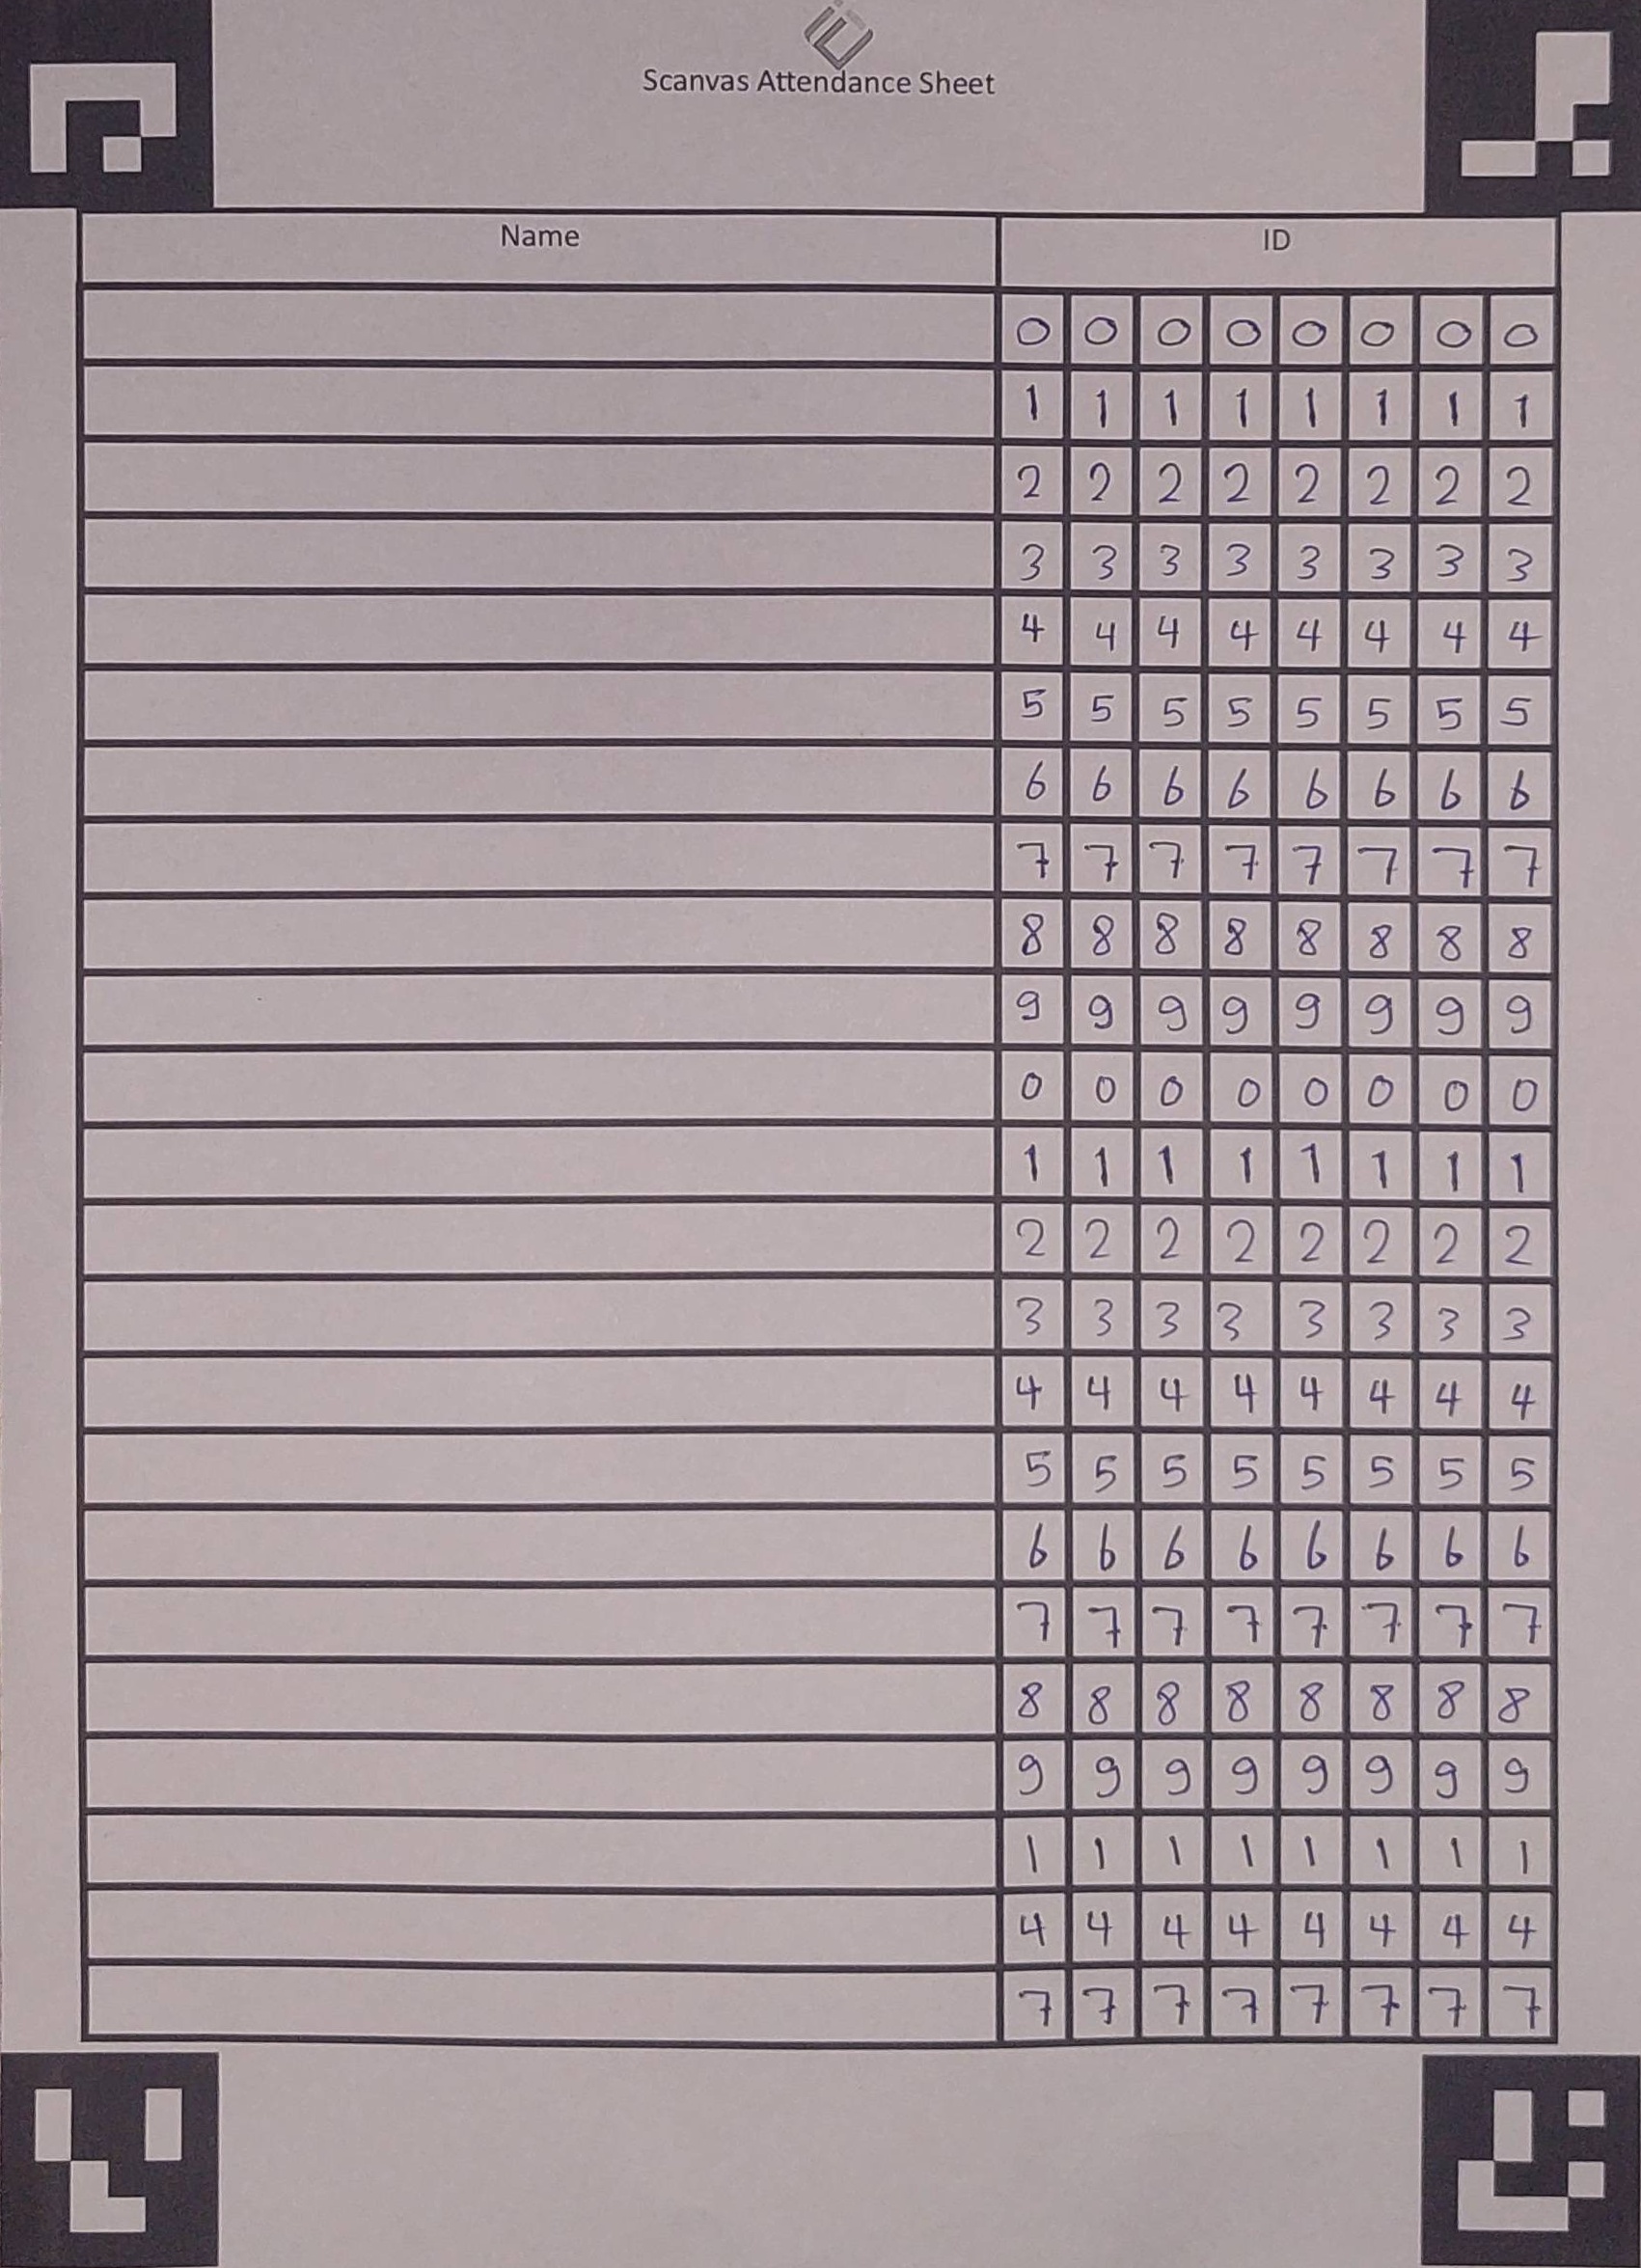 Scanvas Attendance Sheet
Name ID
0 0 0 0 0 0 0 0
1 1 1 1 1 1 1 1
2 2 2 2 2 2 2 2
3 3 3 3 3 3 3 3
4 4 4 4 4 4 4 4
5 5 5 5 5 5 5 5
6 6 6 6 6 6 6 6
7 7 7 7 7 7 7 7
8 8 8 8 8 8 8 8
9 9 9 9 9 9 9 9
0 0 0 0 0 0 0 0
1 1 1 1 1 1 1 1
2 2 2 2 2 2 2 2
3 3 3 3 3 3 3 3
4 4 4 4 4 4 4 4
5 5 5 5 5 5 5 5
6 6 6 6 6 6 6 6
7 7 7 7 7 7 7 7
8 8 8 8 8 8 8 8
9 9 9 9 9 9 9 9
1 1 1 1 1 1 1 1
4 4 4 4 4 4 4 4
7 7 7 7 7 7 7 7